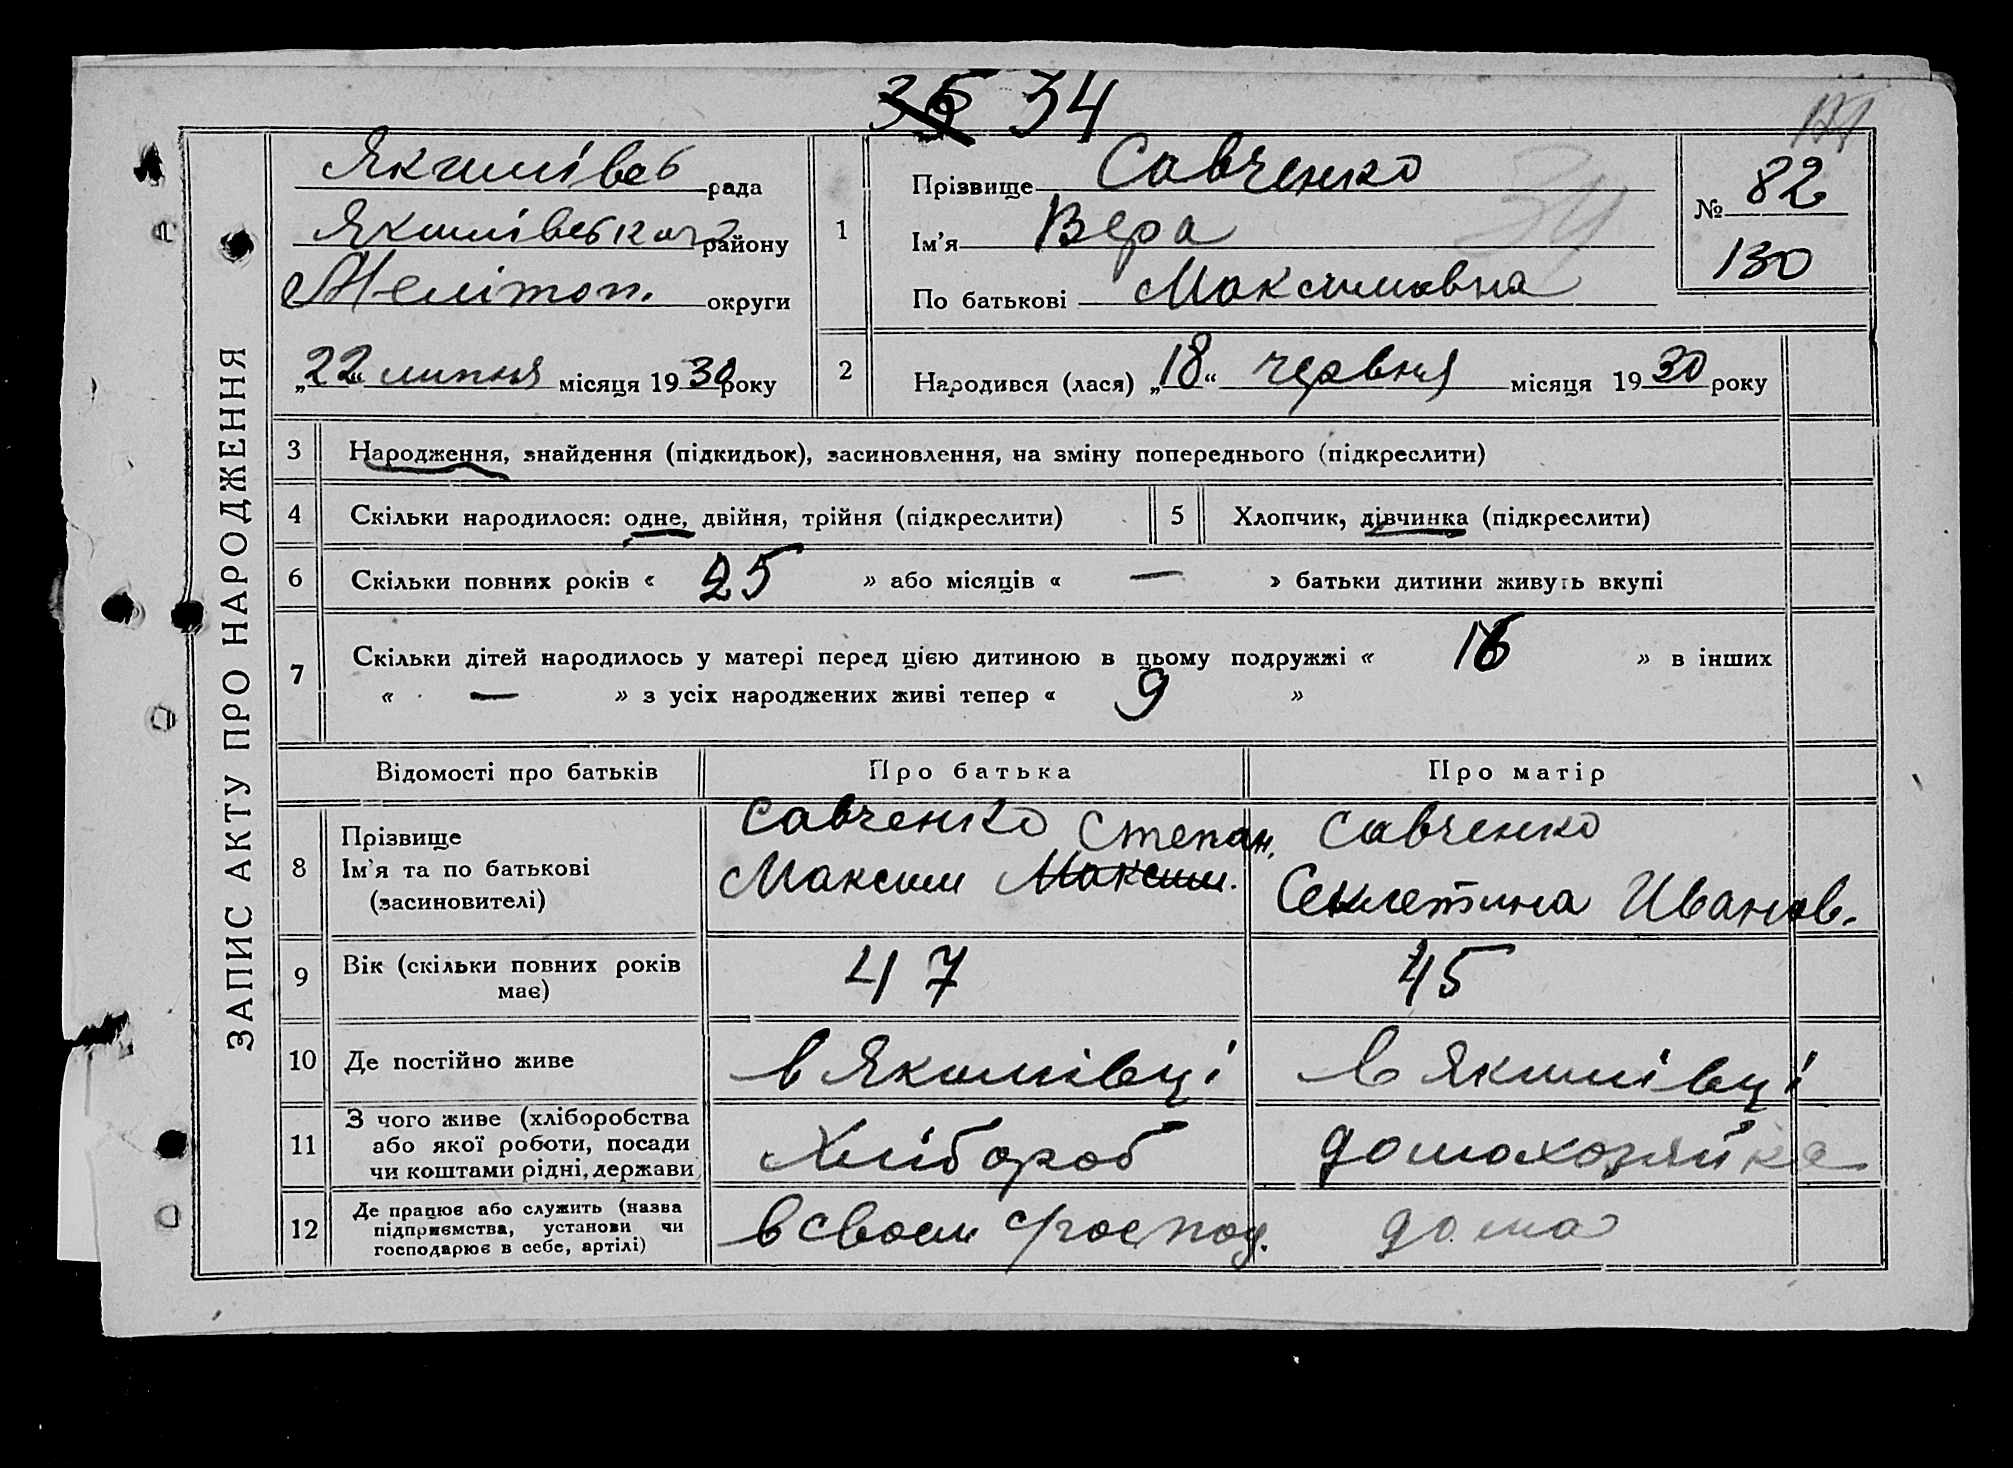 35 34
Якимівсь рада
Якимівського району
Мелітоп. округи
„22“ липня місяця 1930 року
1
Прізвище Савченко
Ім'я Вера
По батькові Максимовна
№ 82
130
34
2
Народився (лася) „18“ червня місяця 1930 року
ЗАПИС АКТУ ПРО НАРОДЖЕННЯ
3 Народження, знайдення (підкидьок), засиновлення, на зміну попереднього (підкреслити)
4 Скільки народилося: одне, двійня, трійня (підкреслити) 5 Хлопчик, дівчинка (підкреслити)
6 Скільки повних років « 25 » або місяців « — » батьки дитини живуть вкупі
7 Скільки дітей народилось у матері перед цією дитиною в цьому подружжі « 16 » в інших
« — » з усіх народжених живі тепер « 9 »
Відомості про батьків Про батька Про матір
8 Прізвище
Ім'я та по батькові
(засиновителі)
Савченко Степан.
Максим Максим.
Савченко
Секлетина Иванов.
9 Вік (скільки повних років
має)
47
45
10 Де постійно живе
в Якимівці
в Якимівці
11 З чого живе (хліборобства
або якої роботи, посади
чи коштами рідні, держави
Хлібороб
домохозяйка
12 Де працює або служить (назва
підприємства, установи чи
господарює в себе, артілі)
в своем господ.
дома